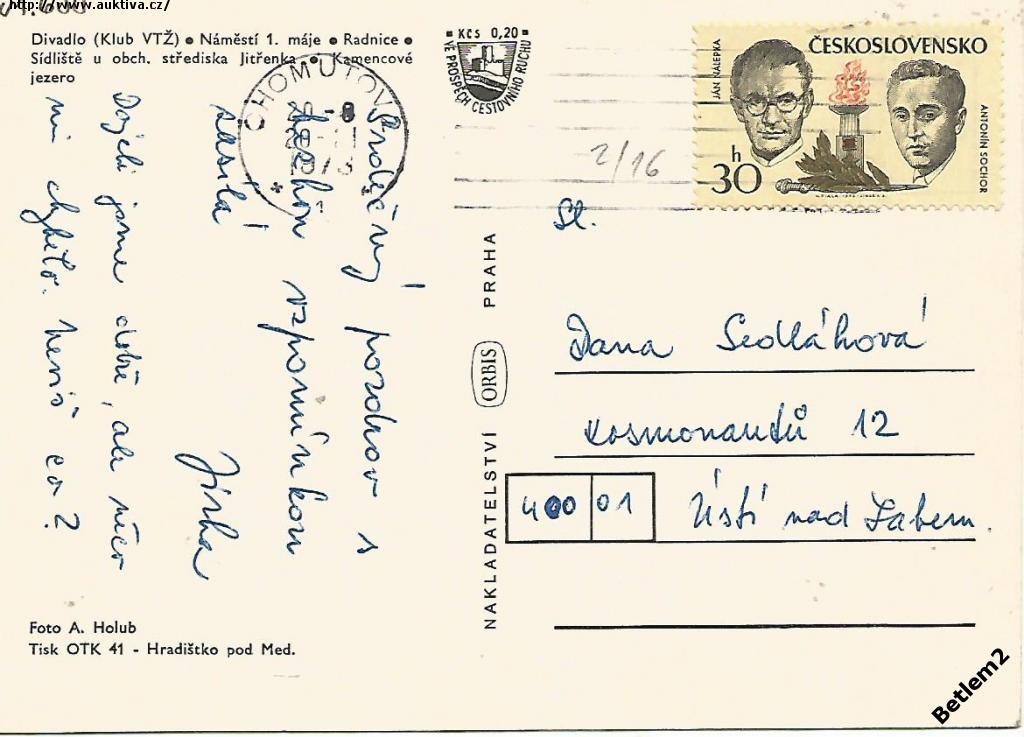 http://www.auktiva.cz/
Divadlo (Klub VTŽ) ● Náměstí 1. máje ● Radnice ●
Sídliště u obch. střediska Jitřenka ● Kamencové
jezero
KČS 0,20
VE PROSPĚCH CESTOVNÍHO RUCHU
CHOMUTOV
1973
1
2/16
ČESKOSLOVENSKO
JÁN NÁLEPKA
ANTONÍN SOCHOR
30 h
Srdečný pozdrav s
hezkou vzpomínkou
zasílá
Jirka
Dojeli jsme dobře, ale něco
mi chybělo. Nevíš co?
Sl.
Dana Sedláková
Kosmonautů 12
400 01 Ústí nad Labem.
NAKLADATELSTVÍ ORBIS PRAHA
Foto A. Holub
Tisk OTK 41 - Hradištko pod Med.
Betlem2